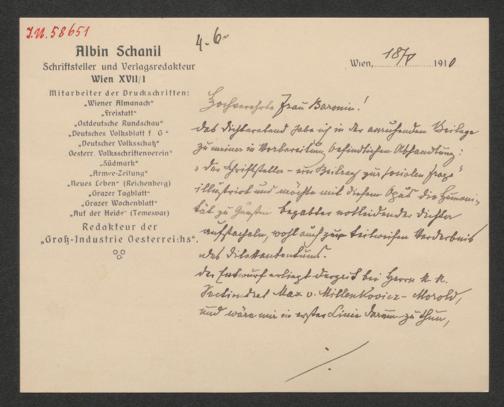 J.N. 58651
4-6-
Albin Schanil
Schriftsteller und Verlagsredakteur
Wien XVII/1
Mitarbeiter der Druckschriften:
„Wiener Almanach"
„Freistatt"
„Ostdeutsche Rundschau"
„Deutsches Volksblatt f. G."
„Deutscher Volksschatz"
Oesterr. Volksschriftenverein"
„Südmark"
„Armee-Zeitung"
„Neues Leben" (Reichenberg)
„Grazer Tagblatt"
„Grazer Wochenblatt"
„Auf der Heide" (Temesvar)
Redakteur der
„Groß-Industrie Oesterreichs".
Wien, 18/V 1910
Hochverehrte Frau Baronin!
Das Dichterelend habe ich in der anruhenden Beilage
zu meiner in Vorbereitung befindlichen Abhandlung:
„Der Schriftsteller - ein Beitrag zur sozialen Frage"
illustriert und möchte mit diesem Opus die Humani-
tät zu Gunsten begabter notleidender Dichter
aufstacheln, wohl auch zum teilweisen Verderbnis
des Dilettantentums.
Der Entwurf erliegt derzeit bei Herrn k. k.
Sectionsrat Max v. Millenkovics-Morold,
und wäre mir in erster Linie darum zu thun,
./.